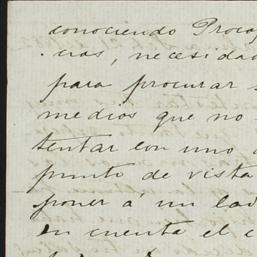 conociendo
cias, necesidad
para procurar
medios que no
tentar con uno
punto de vista
poner á un lad
en cuenta el c